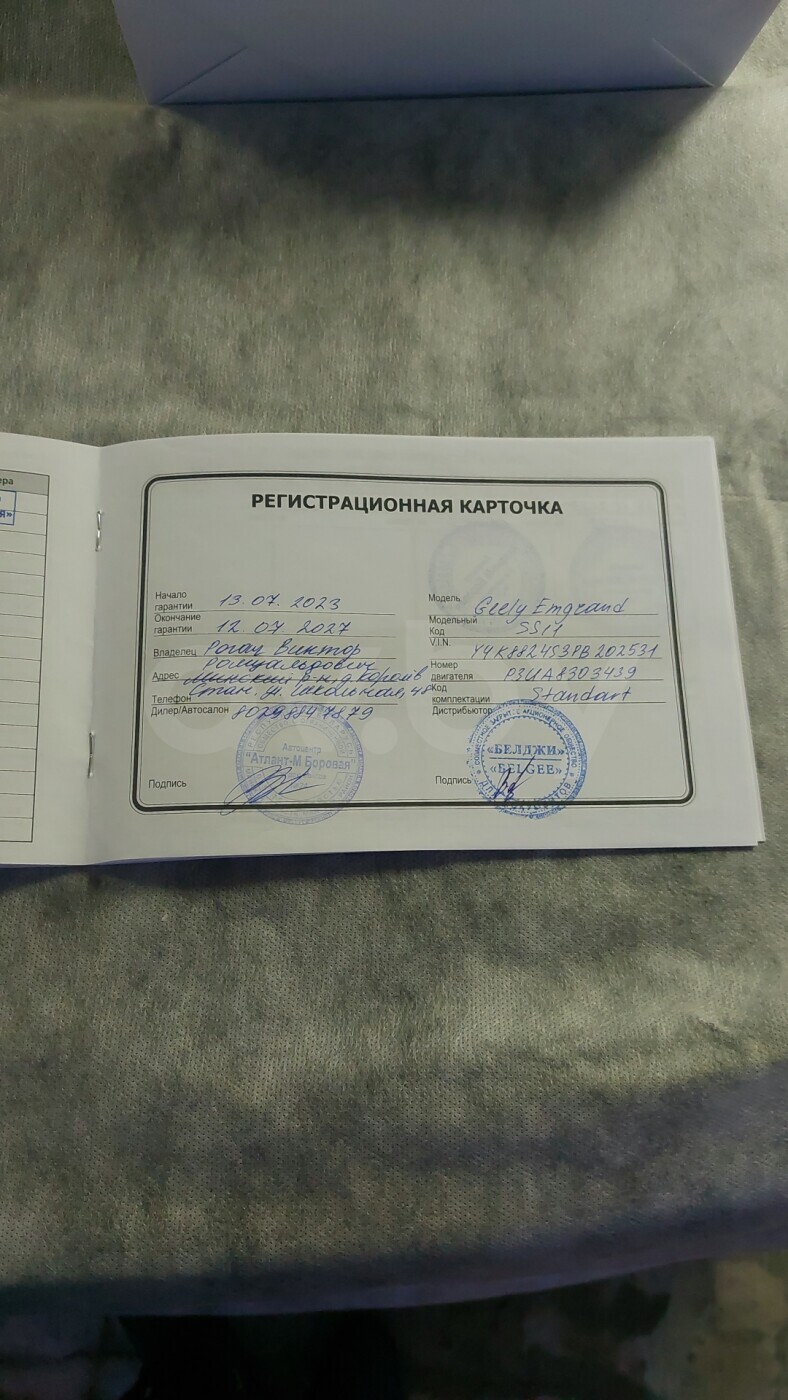 ера
я»
РЕГИСТРАЦИОННАЯ КАРТОЧКА
Начало гарантии 13.07.2023
Окончание гарантии 12.07.2027
Владелец Рогач Виктор
Ромуальдович
Адрес Минский р-н, д. Королёв
Стан, ул. Школьная,
Телефон
Дилер/Автосалон 80298847879
Автоцентр
"Атлант-М Боровая"
Подпись
Модель Geely Emgrand
Модельный Код SS11
V.I.N. Y4K8824S3PB202531
Номер двигателя P3UA8303439
Код комплектации Standart
Дистрибьютор
«БЕЛДЖИ»
«BELGEE»
Подпись